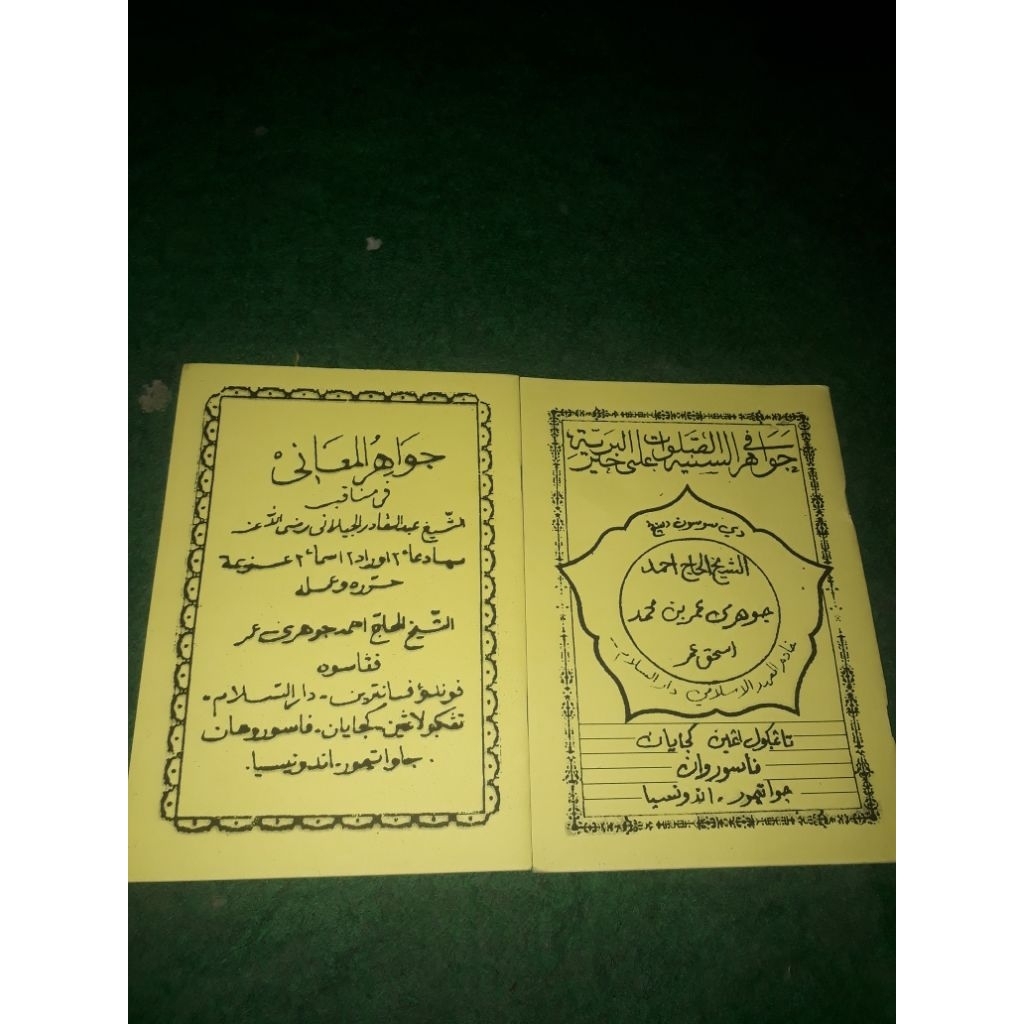 جَوَاهِرُ المَعَانِى
فى مناقب
الشّيخ عبد القادر الجيلانى رضى الله عنه
حرّره وعمله
الشّيخ الحاج احمد جوهرى عمر
فقاسوه
فوندوٴ فسانترين - دار السّلام -
تڠكولاڠين - كجايان - فاسوروهان
جاوا تيمور - اندونيسيا .
جَوَاهِر السنية فى الصّلوات على خير البريّة
دي سوسون اوليه
الشيخ الحاج احمد
جوهرى عمر بن محمد
اسحق عمر
خادم المعهد الاسلامي دار السلام
تاڠكول اڠين كجايان
فاسوروان
جوا تيمور - اندونسيا